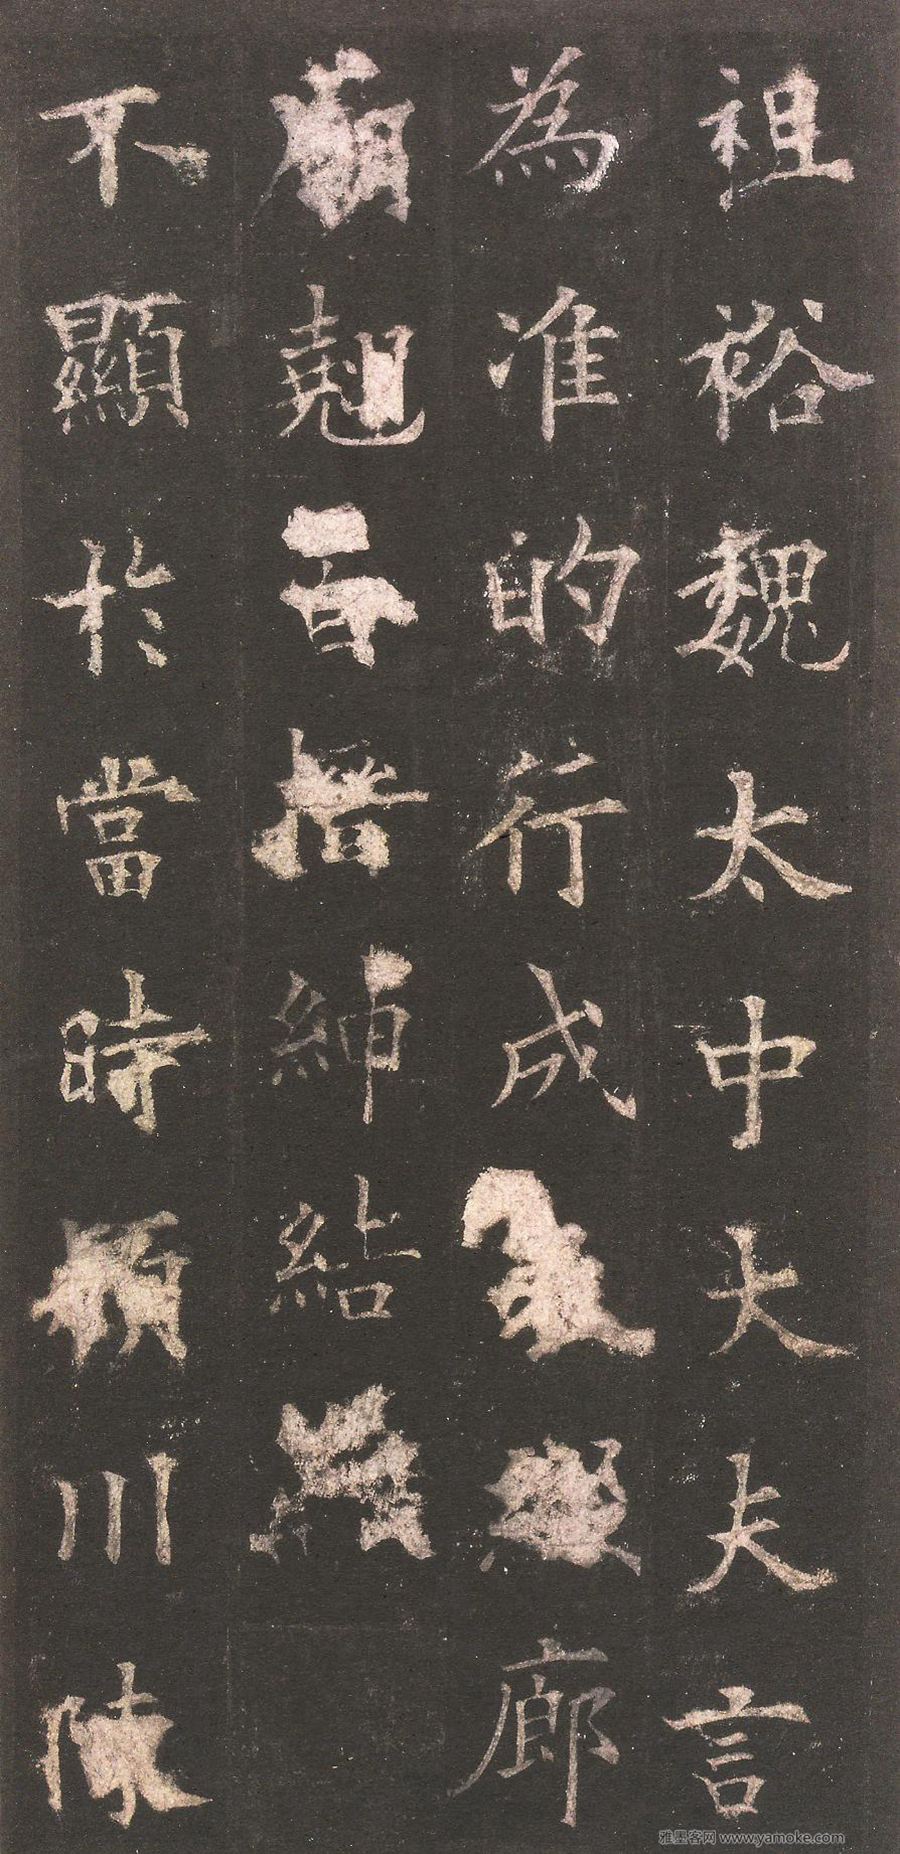 祖裕魏太中大夫言
為准的行成廊
廟魁百搢紳結
不顯於當時潁川陳
雅墨客网 www.yamoke.com